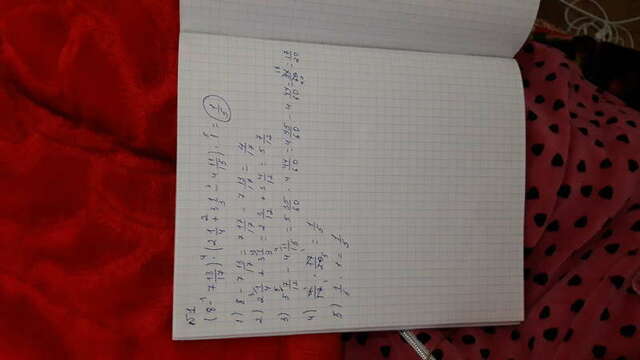 №1
(8 - 7 13/17) · (2 1/4 + 3 1/3 - 4 11/15) · 1 = 1/5
1) 8 - 7 13/17 = 7 17/17 - 7 13/17 = 4/17
2) 2 1/4 + 3 1/3 = 2 3/12 + 3 4/12 = 5 7/12
3) 5 7/12 - 4 11/15 = 5 35/60 - 4 44/60 = 4 95/60 - 4 44/60 = 51/60 = 17/20
4) 4/17 · 17/20 = 1/5
5) 1/5 · 1 = 1/5